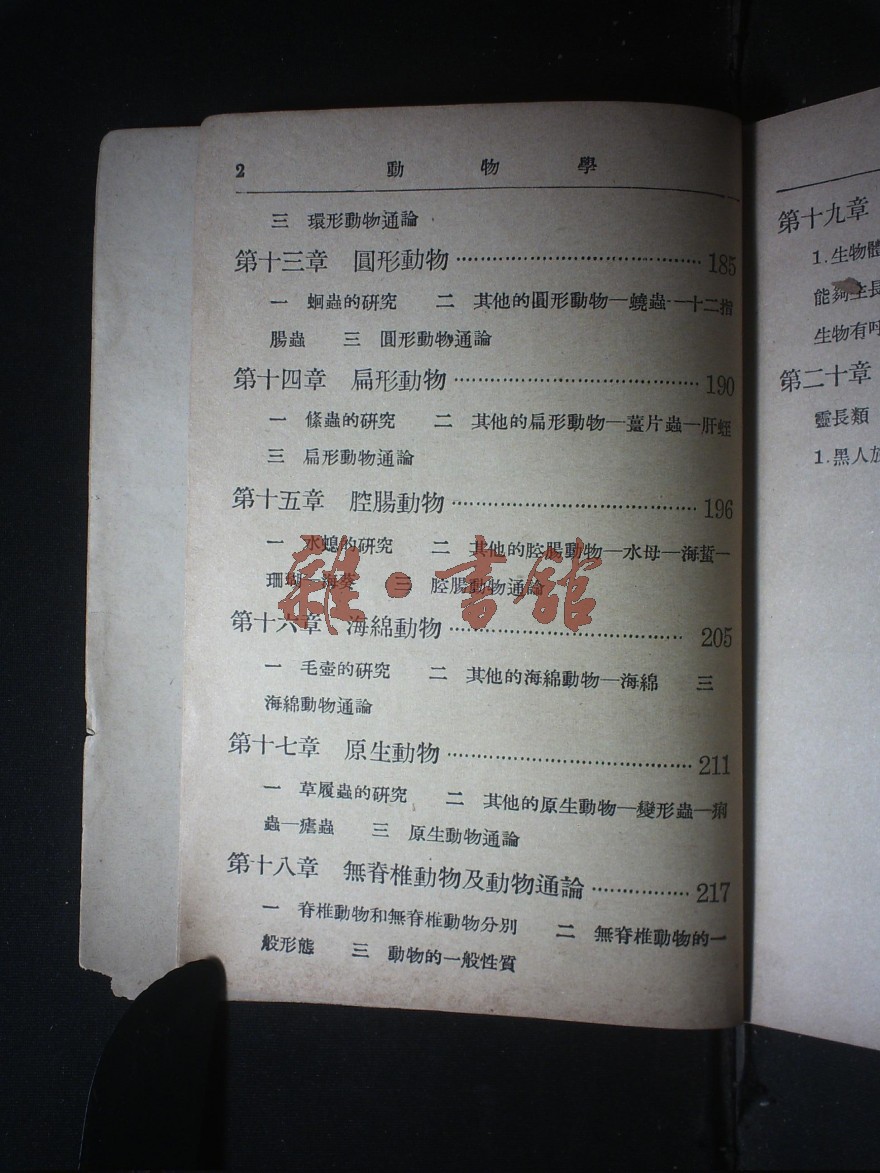 2 動物學
三 環形動物通論
第十三章 圓形動物 185
一 蛔蟲的研究 二 其他的圓形動物—蟯蟲—十二指
腸蟲 三 圓形動物通論
第十四章 扁形動物 190
一 絛蟲的研究 二 其他的扁形動物—薑片蟲—肝蛭
三 扁形動物通論
第十五章 腔腸動物 196
一 水螅的研究 二 其他的腔腸動物—水母—海蜇—
珊瑚—海葵 三 腔腸動物通論
第十六章 海綿動物 205
一 毛壺的研究 二 其他的海綿動物—海綿 三
海綿動物通論
第十七章 原生動物 211
一 草履蟲的研究 二 其他的原生動物—變形蟲—痢
蟲—瘧蟲 三 原生動物通論
第十八章 無脊椎動物及動物通論 217
一 脊椎動物和無脊椎動物分別 二 無脊椎動物的一
般形態 三 動物的一般性質
雜·書館
第十九章
1.生物體
能夠生長
生物有呼
第二十章
靈長類
1.黑人